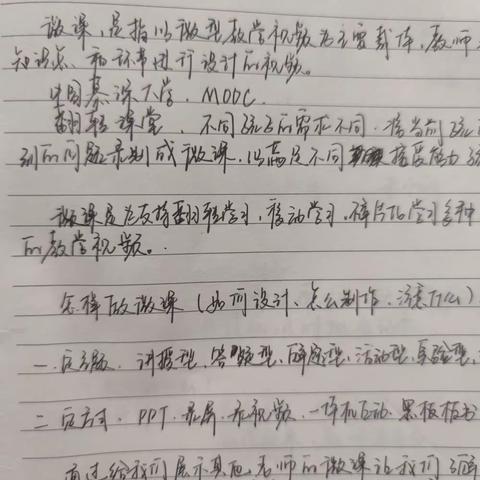 微课，是指以微型教学视频为主要载体，教师
知识点和环节进行设计的视频。
中国慕课大学，MOOC.
翻转课堂，不同孩子的需求不同，将当前孩
到的问题录制成微课，以满足不同接受能力孩
微课是为支持翻转学习，移动学习，碎片化学习多种
的教学视频。
怎样做微课（如何设计、怎么制作、注意什么）
一.定主题. 讲授型、答疑型、解题型、活动型、实验型、
二 定方式. PPT. 录屏. 录视频、一体机互动. 黑板板书
通过给我们展示其他老师的微课让我们